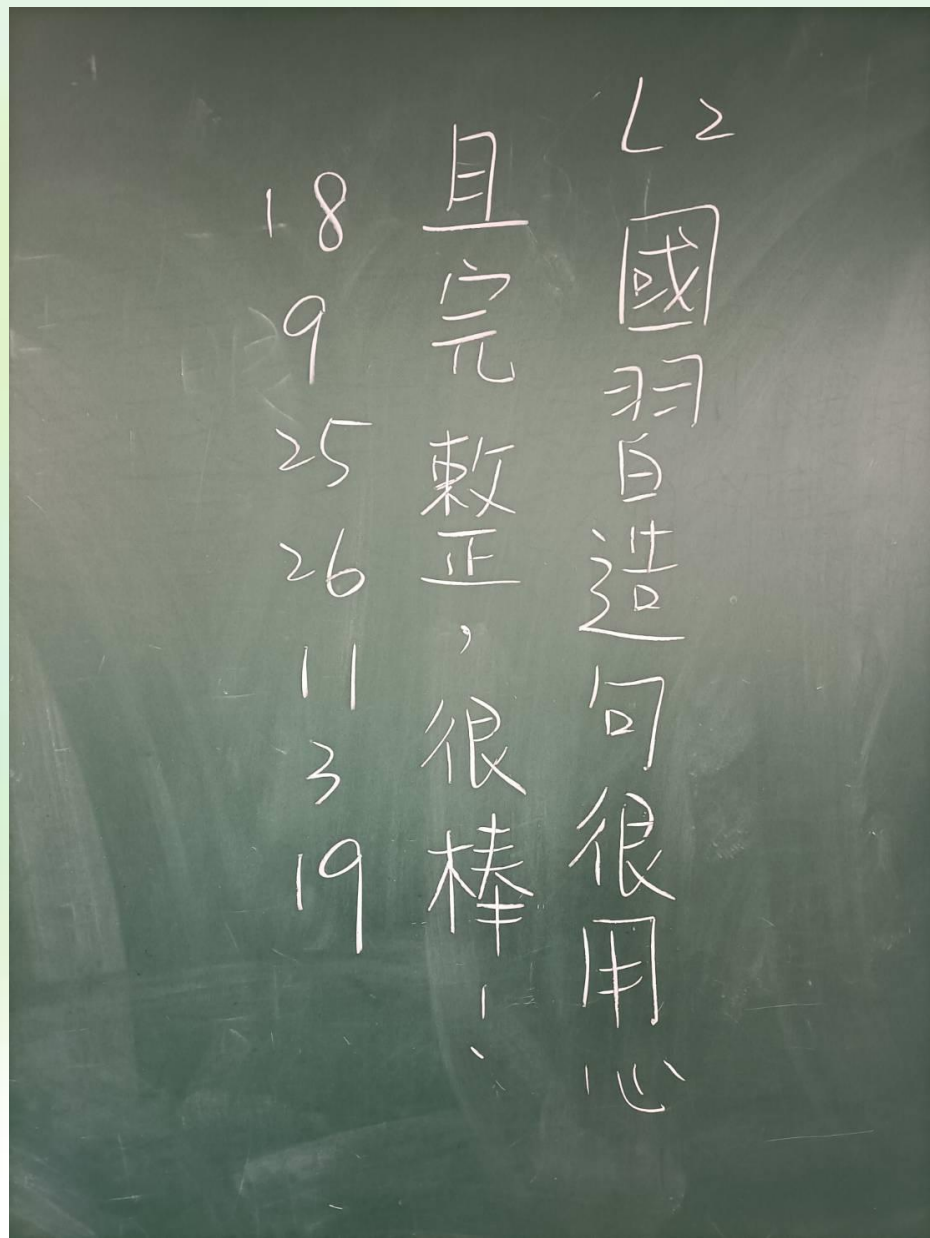 L2
國習造句很用心
且完整，很棒！
18
9
25
26
11
3
19